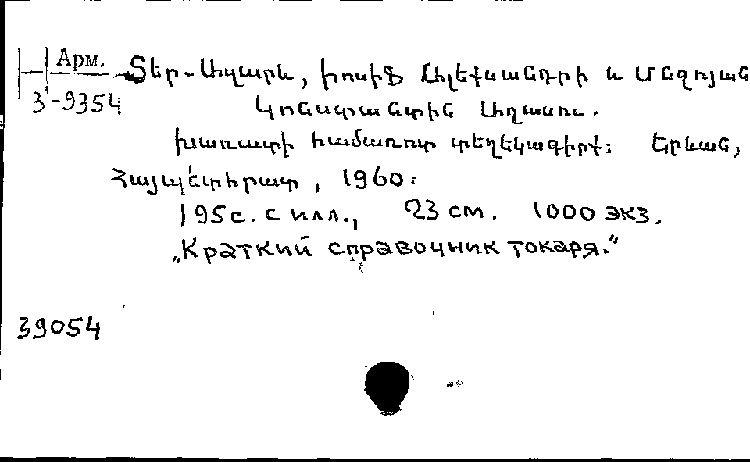 Арм.
Տեր-Ազարև, Իոսիֆ Ալեքսանդրի և Մեզոյան
3-9354
Կոնստանտին Աղասու.
Խառատի համառոտ տեղեկագիրք: Երևան,
Հայպետհրատ, 1960:
195с. с илл., 23 см. 1000 экз.
„Краткий справочник токаря.“
39054